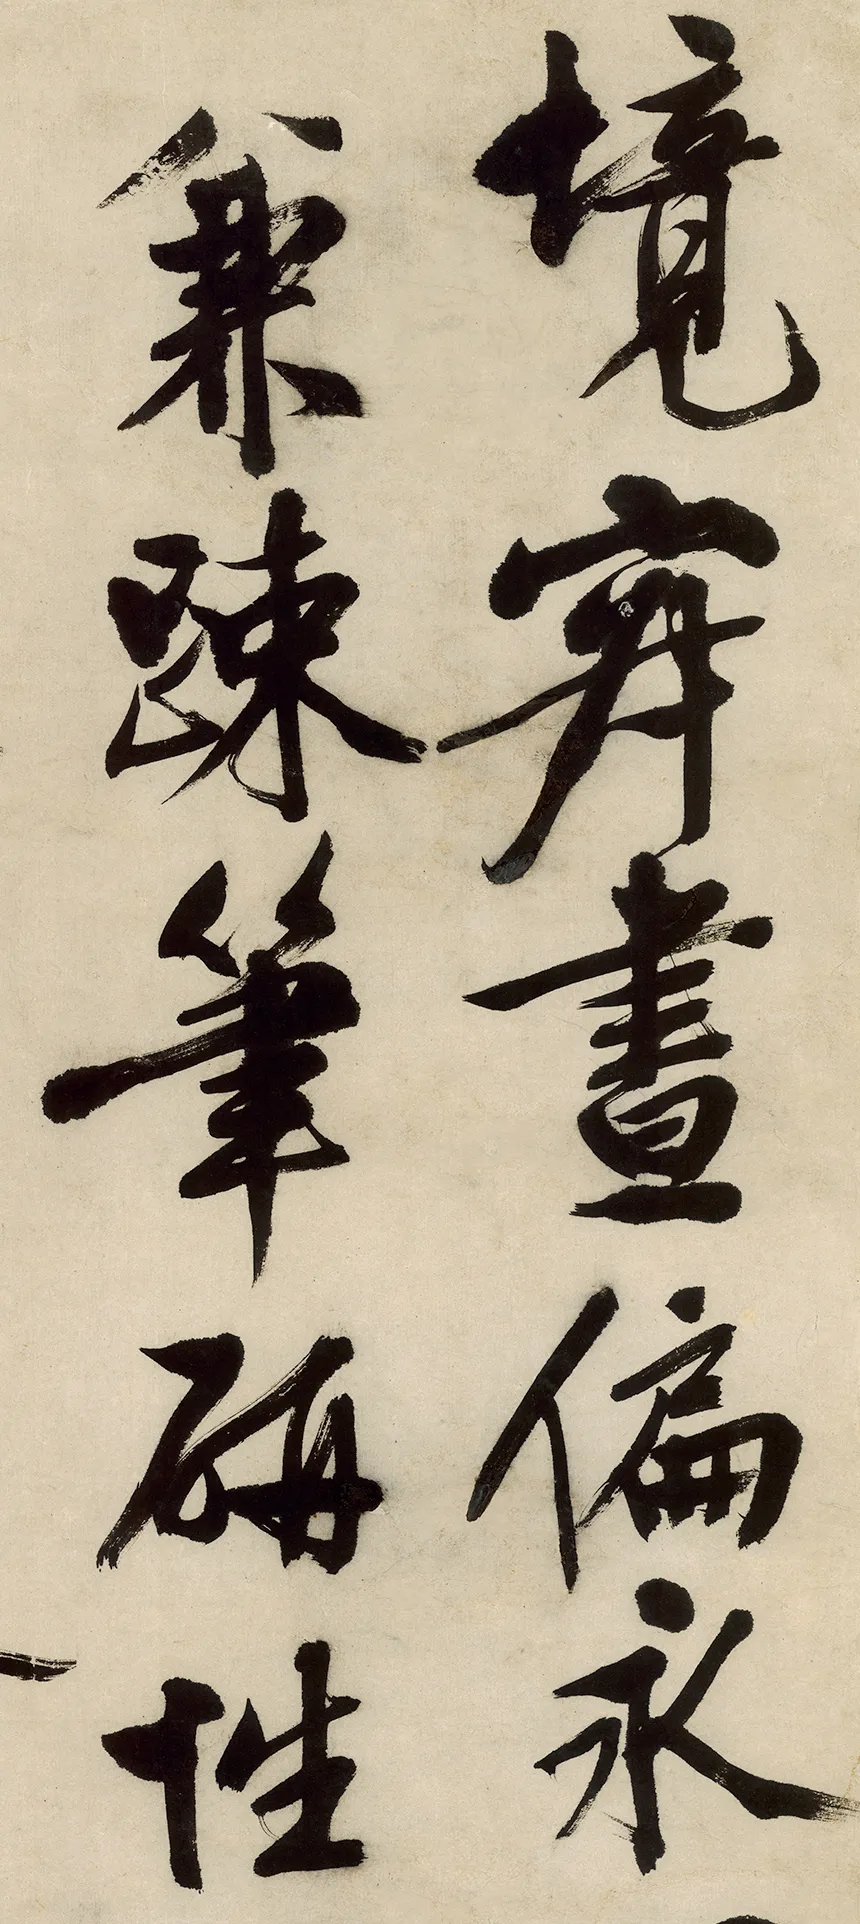 境寂晝偏永
兼疎筆硯性